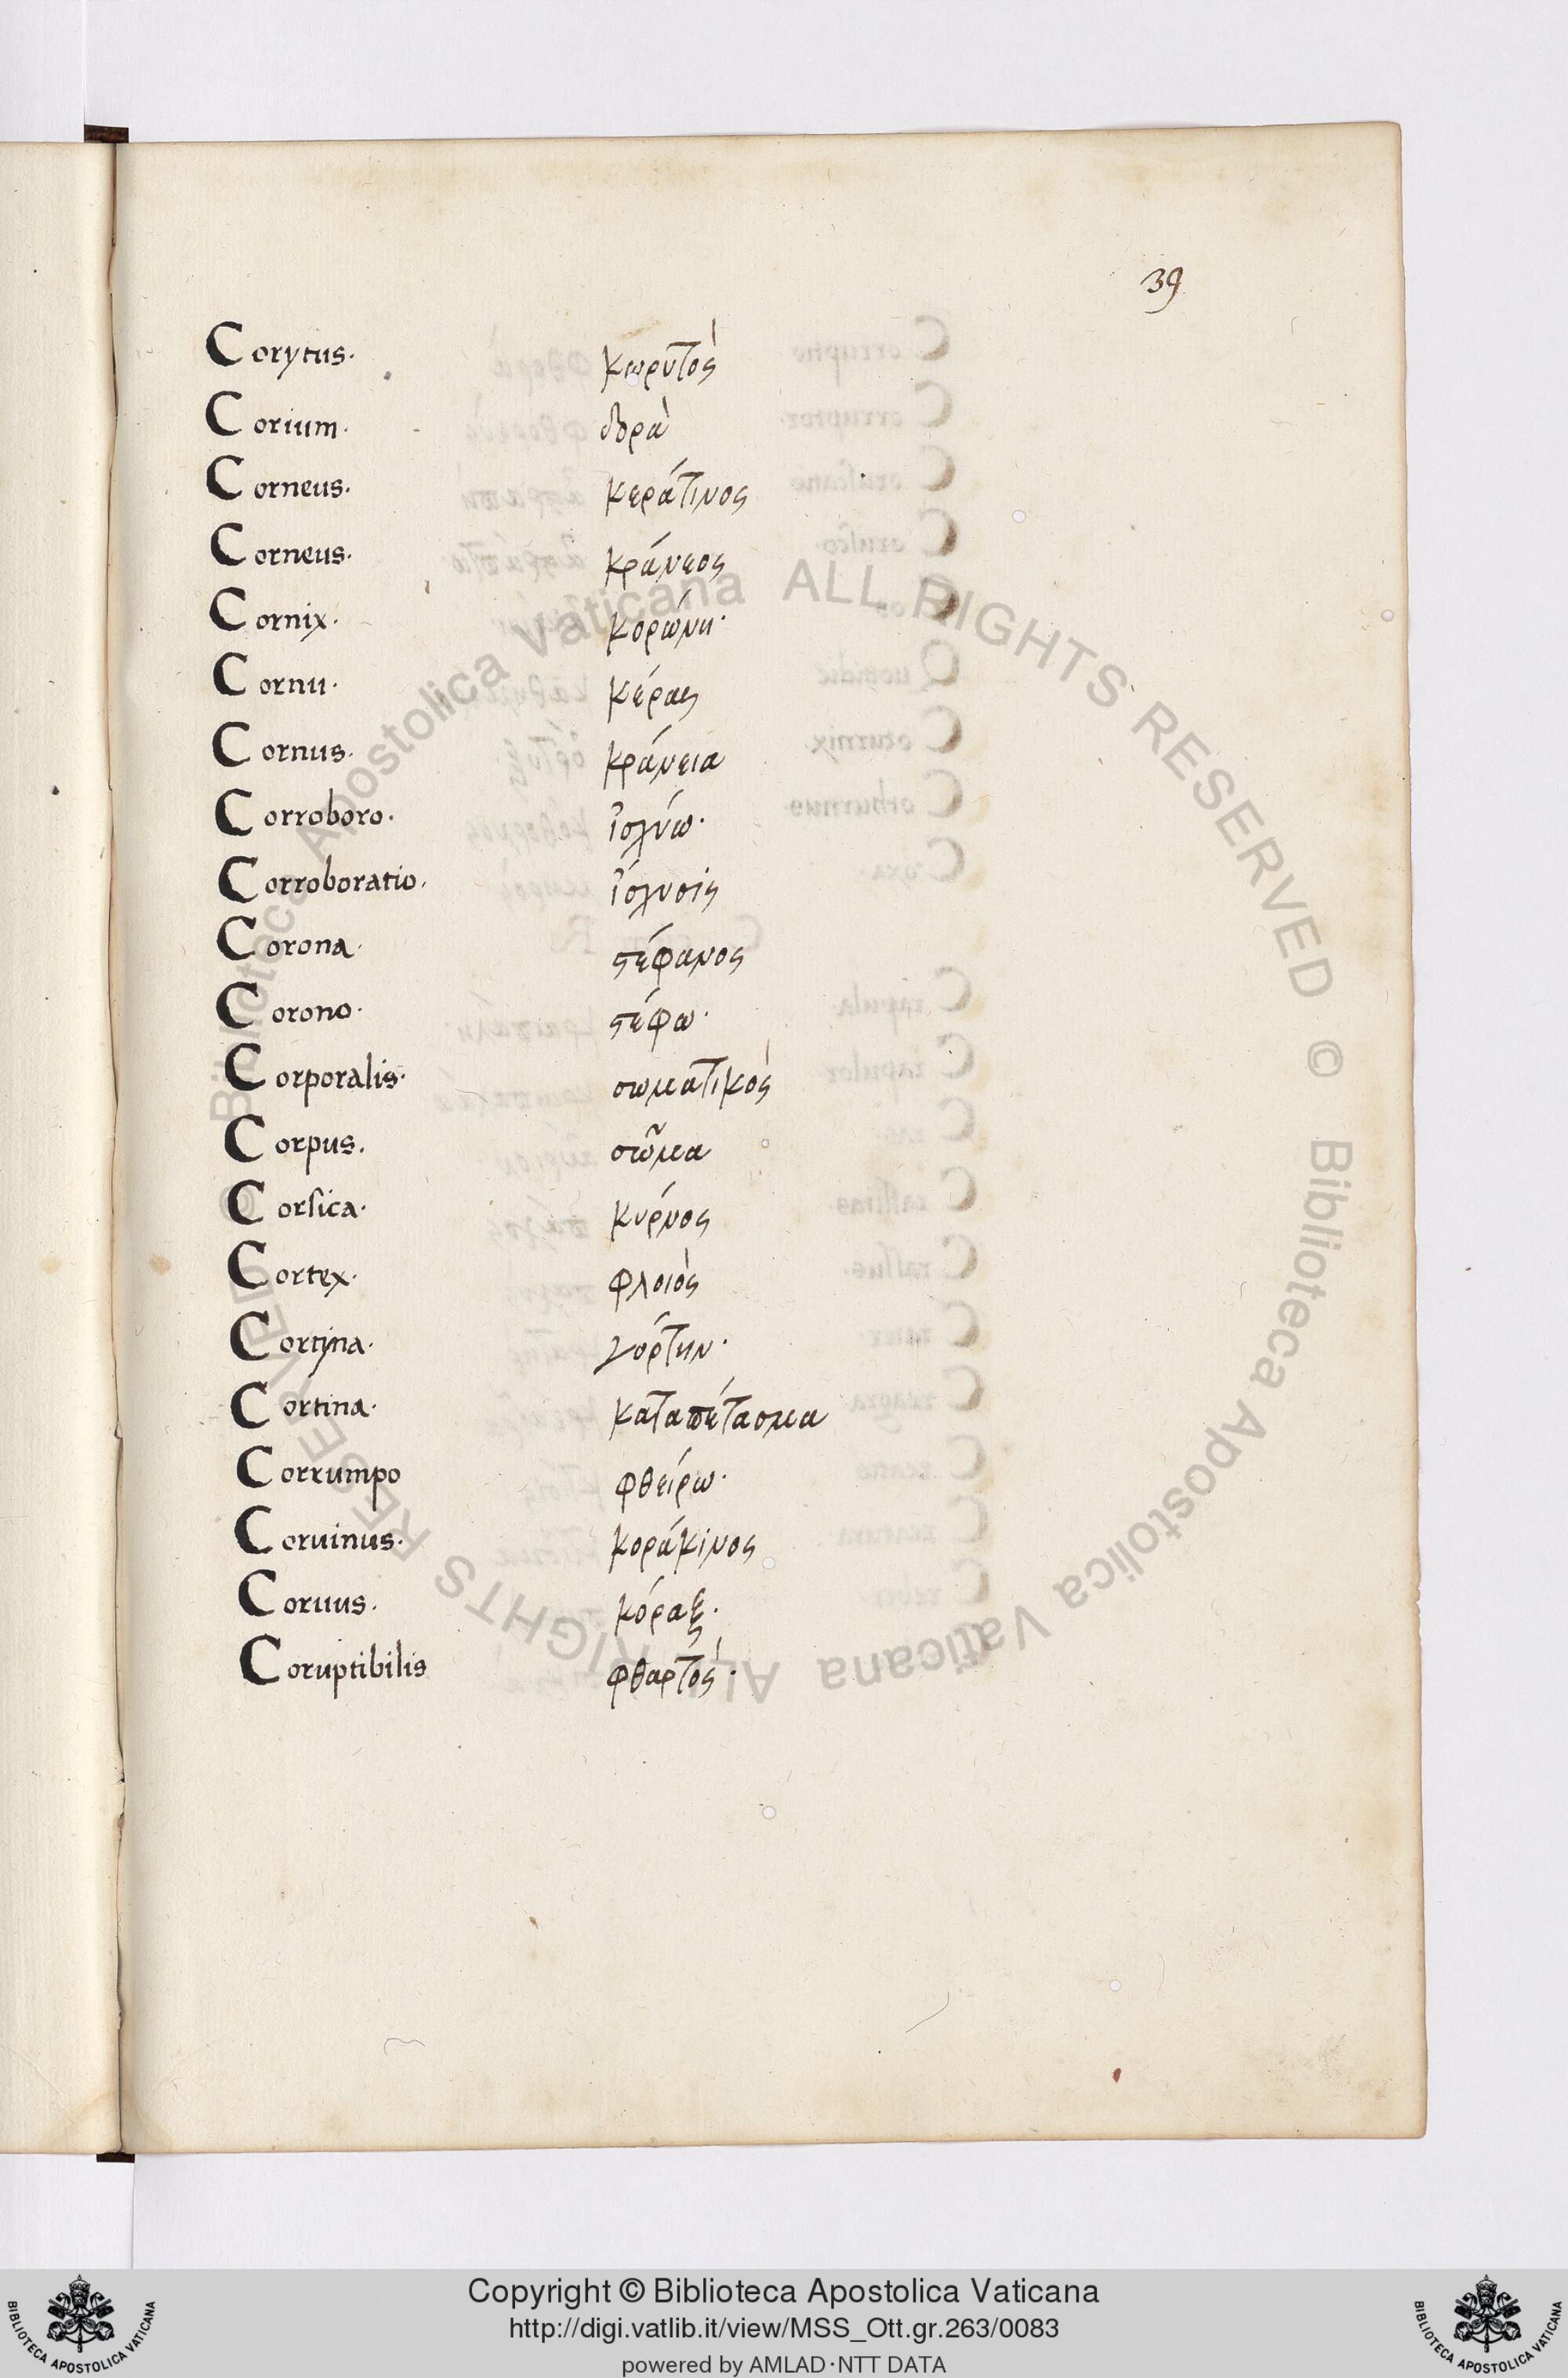 39
Corytus. κωρυτὸς
Corium. δορὰ
Corneus. κεράτινος
Corneus. κράνεος
Cornix. κορώνη.
Cornu. κέρας
Cornus. κράνεια
Corroboro. ἰσχύω.
Corroboratio. ἴσχυσις
Corona. στέφανος
Corono. στέφω.
Corporalis. σωματικὸς
Corpus. σῶμα
Corsica. κύρνος
Cortex. φλοιὸς
Cortyna. γόρτην.
Cortina. καταπέτασμα
Corrumpo φθείρω.
Coruinus. κοράκινος
Coruus. κόραξ.
Coruptibilis φθαρτὸς.
© Biblioteca Apostolica Vaticana ALL RIGHTS RESERVED © Biblioteca Apostolica Vaticana ALL RIGHTS RESERVED
Copyright © Biblioteca Apostolica Vaticana
http://digi.vatlib.it/view/MSS_Ott.gr.263/0083
powered by AMLAD·NTT DATA
BIBLIOTECA APOSTOLICA VATICANA
BIBLIOTECA APOSTOLICA VATICANA